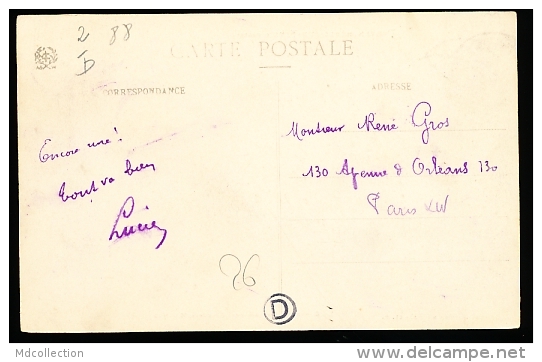 2 88
CARTE POSTALE
CORRESPONDANCE
ADRESSE
Encore une!
tout va bien
Lucien
Monsieur René Gros
130 Avenue d'Orléans 130
Paris XIV
26
D
Mdcollection
www.delcampe.net